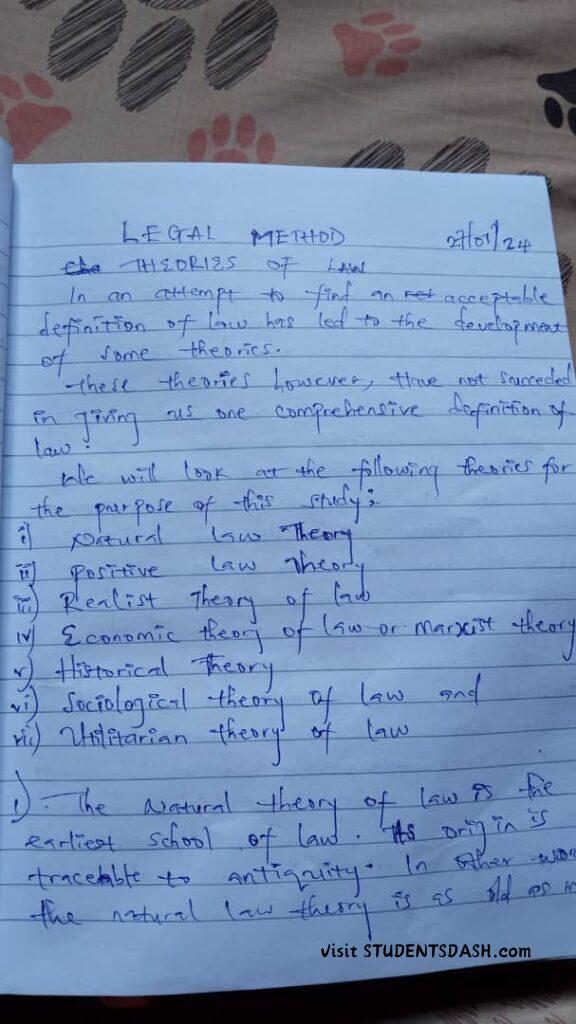 LEGAL METHOD 27/01/24
THEORIES OF LAW
In an attempt to find an acceptable
definition of law has led to the development
of some theories.
These theories however, have not succeded
in giving us one comprehensive definition of
law.
We will look at the following theories for
the purpose of this study;
i) Natural law Theory
ii) Positive law Theory
iii) Realist Theory of law
iv) Economic theory of law or Marxist theory
v) Historical Theory
vi) Sociological theory of law and
vii) Utilitarian theory of law
1) - The Natural theory of law is the
earliest school of law. Its origin is
traceable to antiquity. In other
the natural law theory is as old as
visit STUDENTSDASH.com